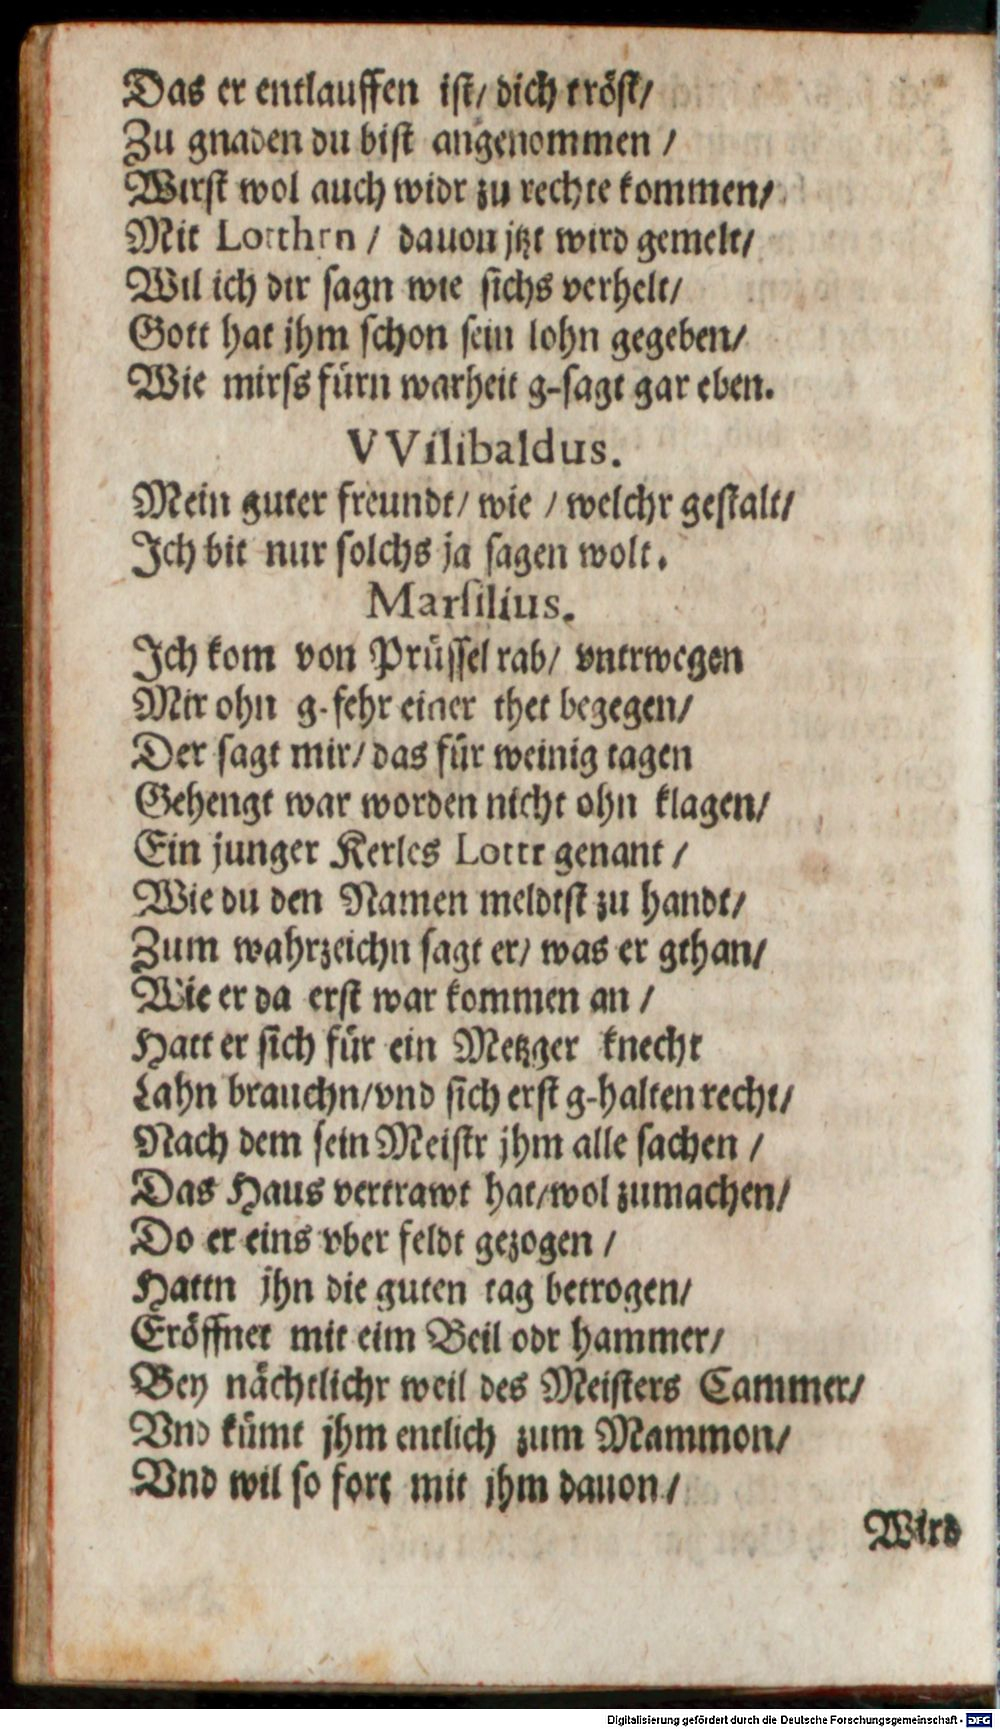 Das er entlauffen ist/ dich tröst/
Zu gnaden du bist angenommen /
Wirst wol auch widr zu rechte kommen/
Mit Lotthrn / dauon jtzt wird gemelt/
Wil ich dir sagn wie sichs verhelt/
Gott hat jhm schon sein lohn gegeben/
Wie mirs fürn warheit g-sagt gar eben.
VVilibaldus.
Mein guter freundt/ wie / welchr gestalt/
Ich bit nur solchs ja sagen wolt.
Marsilius.
Ich kom von Prüssel rab/ vntrwegen
Mir ohn g-fehr einer thet begegen/
Der sagt mir/ das für weinig tagen
Gehengt war worden nicht ohn klagen/
Ein junger Kerles Lottr genant /
Wie du den Namen meldtst zu handt/
Zum wahrzeichn sagt er/ was er gthan/
Wie er da erst war kommen an /
Hatt er sich für ein Metzger knecht
Lahn brauchn/vnd sich erst g-halten recht/
Nach dem sein Meistr jhm alle sachen /
Das Haus vertrawt hat/wol zumachen/
Do er eins vber feldt gezogen /
Hattn jhn die guten tag betrogen/
Eröffnet mit eim Beil odr hammer/
Bey nächtlichr weil des Meisters Cammer/
Vnd kümt jhm entlich zum Mammon/
Vnd wil so fort mit jhm dauon/
Wird
Digitalisierung gefördert durch die Deutsche Forschungsgemeinschaft - DFG